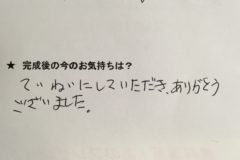 ★ 完成後の今のお気持ちは？
ていねいにしていただき、ありがとう
ございました。